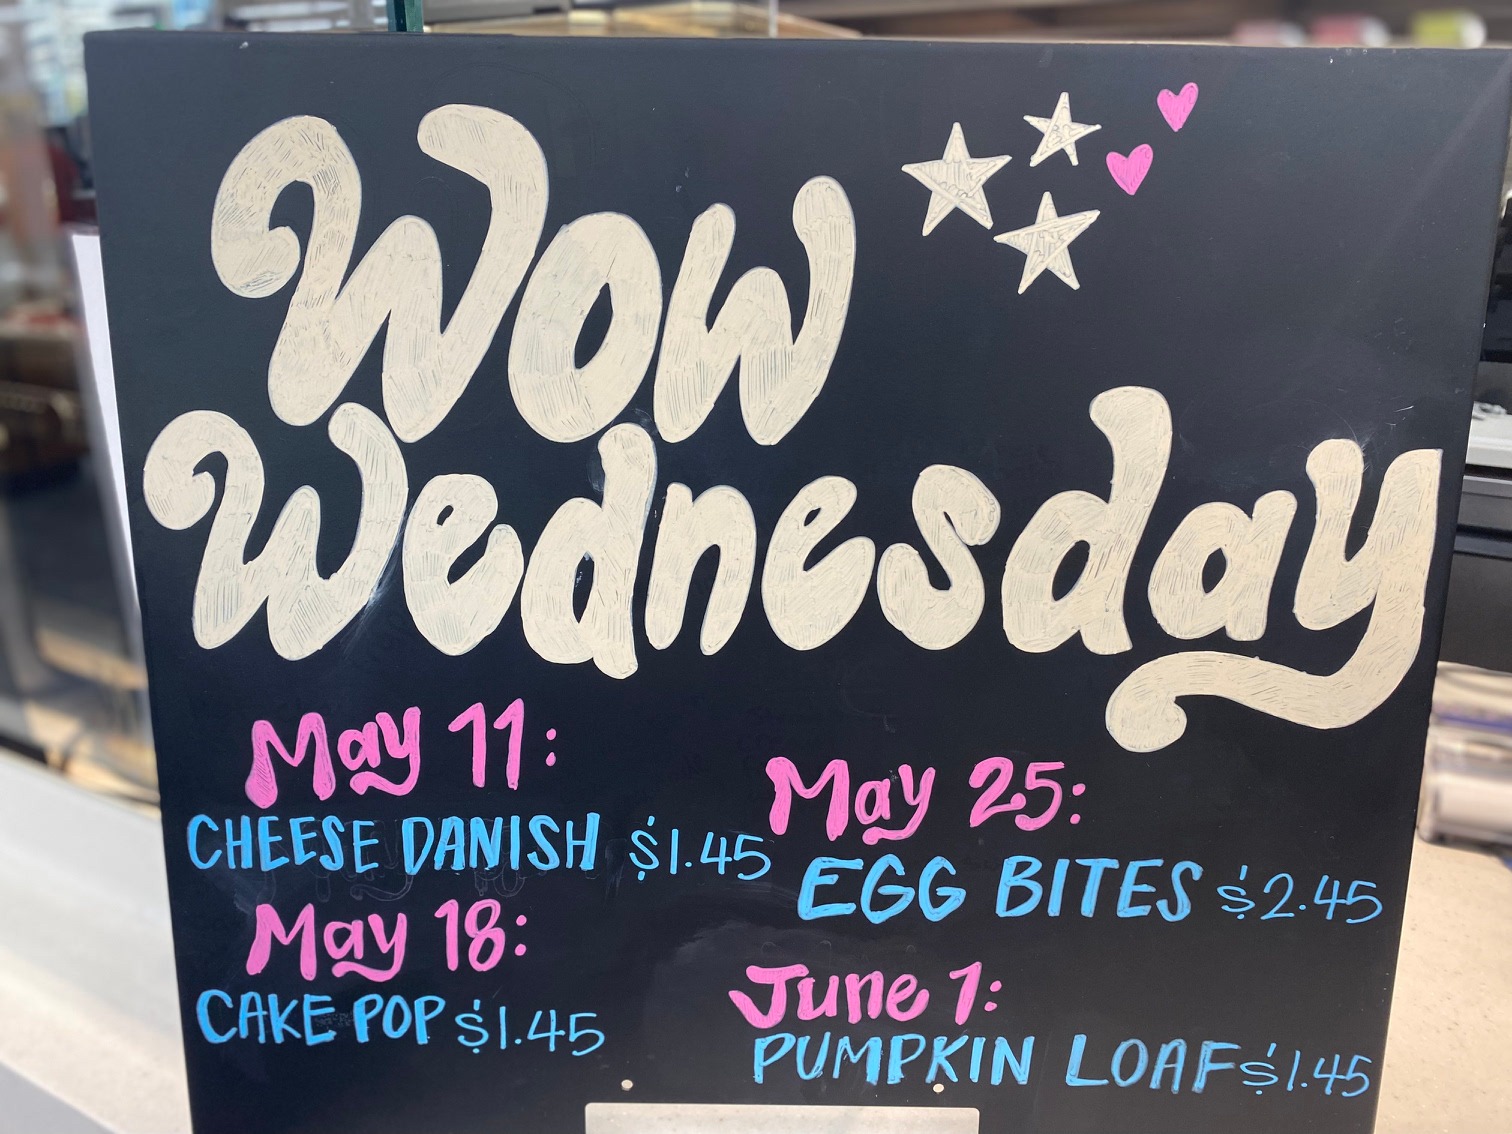 Wow
Wednesday
May 11:
CHEESE DANISH $1.45
May 18:
CAKE POP $1.45
May 25:
EGG BITES $2.45
June 1:
PUMPKIN LOAF $1.45